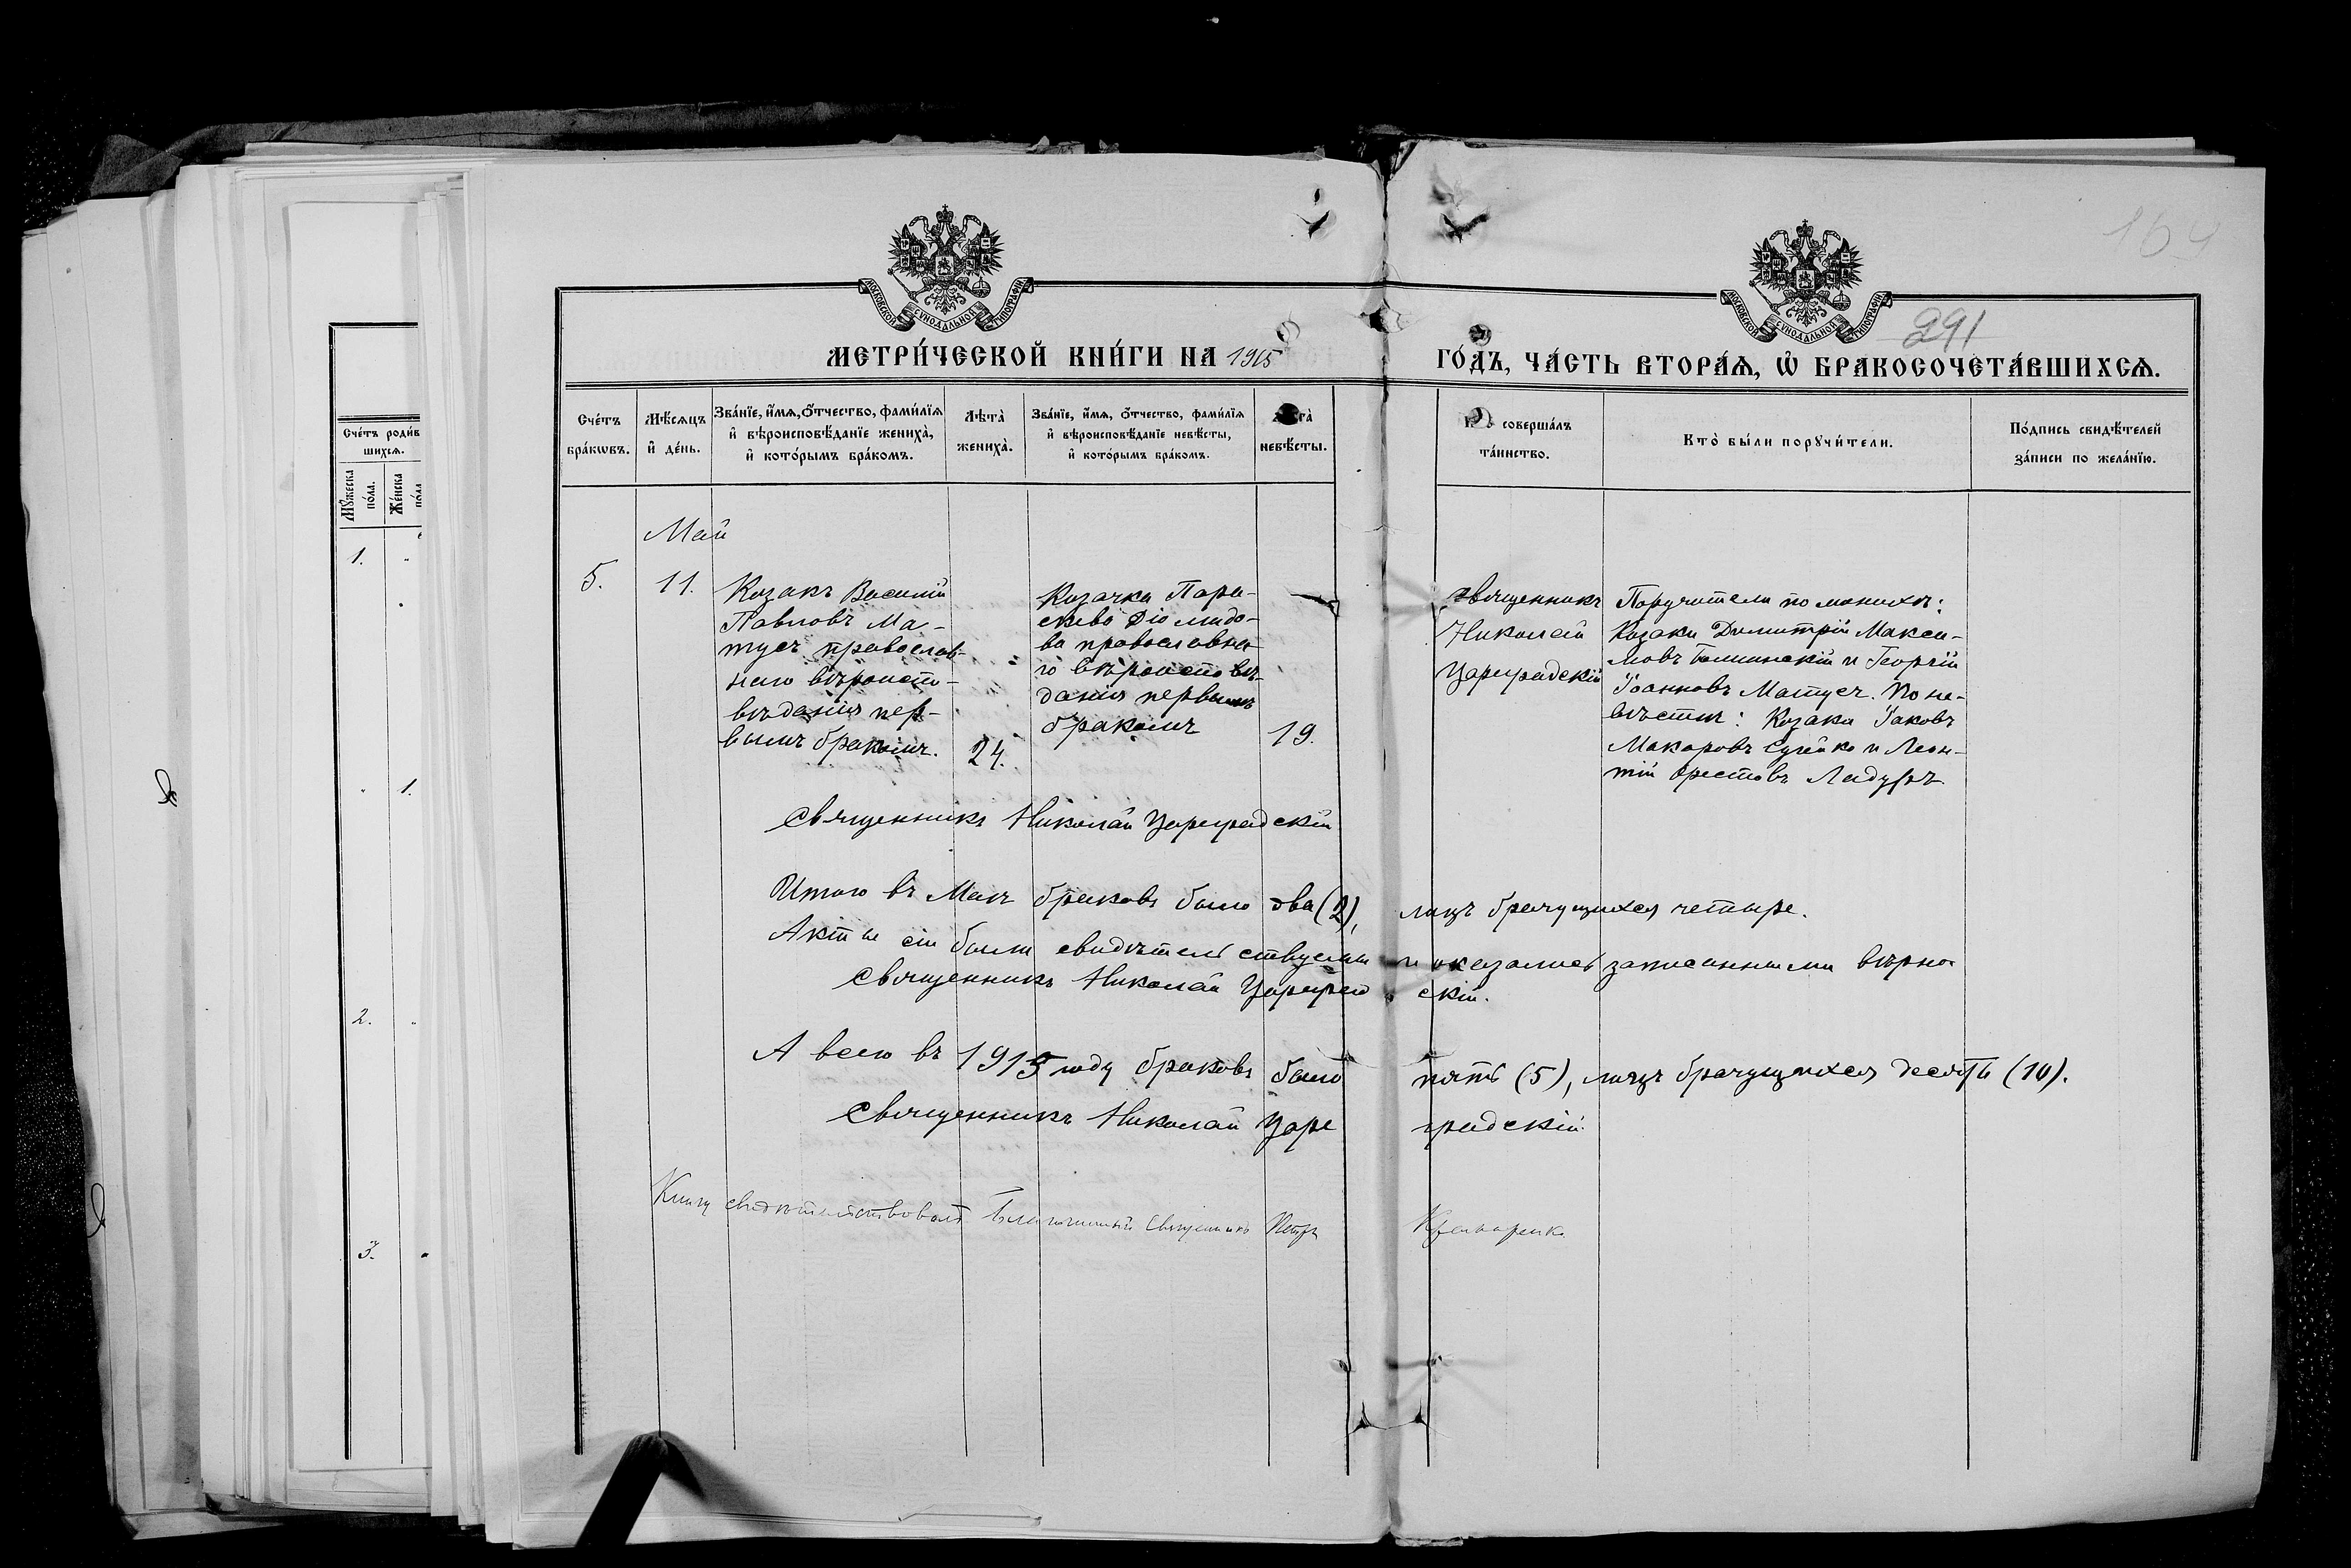 164
291
МОСКОВСКОЙ СѴНОДАЛЬНОЙ ТИПОГРАФІИ
МОСКОВСКОЙ СѴНОДАЛЬНОЙ ТИПОГРАФІИ
МЕТРИ́ЧЕСКОЙ КНИ́ГИ НА 1915
ГО́ДЪ, ЧА́СТЬ ВТОРА́Ѧ, Ѽ БРАКОСОЧЕТА́ВШИХСѦ.
Сче́тъ роди́в
шихсѧ.
Мꙋ́жеска
по́ла.
Же́нска
по́ла
1.
1.
2.
3.
Сче́тъ
бра́кѡвъ.
Мѣ́сѧцъ
и҆ де́нь.
Зва́нїе, и҆́мѧ, ѻ҆́тчество, фами́лїѧ
и҆ вѣроисповѣ́данїе жениха̀,
и҆ кото́рымъ бра́комъ.
Лѣта̀
жениха̀.
Зва́нїе, и҆́мѧ, ѻ҆́тчество, фами́лїѧ
и҆ вѣроисповѣ́данїе невѣ́сты,
и҆ кото́рымъ бра́комъ.
невѣ́сты.
соверша́лъ
та́инство.
Кто̀ бы́ли порꙋчи́тели.
По́дпись свидѣ́телей
за́писи по жела́нїю.
Май
5.
11.
Козакъ Василій
Павловъ Ма-
тусъ православ-
наго вѣроиспо-
вѣданія пер-
вымъ бракомъ.
24.
Козачка Пара-
скева Діомидо-
ва православна-
го вѣроисповѣ-
данія первымъ
бракомъ
19.
Священникъ
Николай
Цареградскій
Поручители по женихѣ:
Козаки Димитрій Макси-
мовъ и Георгій
Іоанновъ Матусъ. По не-
вѣстѣ: Козаки Іаковъ
Макаровъ и Леон-
тій Орестовъ
Священникъ Николай Цареградскій
Итого въ Маѣ браковъ было два (2), лицъ брачущихся четыре.
Акты сіи были свидѣтельствуемы и оказались записанными вѣрно
Священникъ Николай Цареградскій.
А всего въ 1915 году браковъ было пять (5), лицъ брачущихся десять (10).
Священникъ Николай Цареградскій.
Книгу свидѣтельствовалъ Благочинный Священникъ Петръ